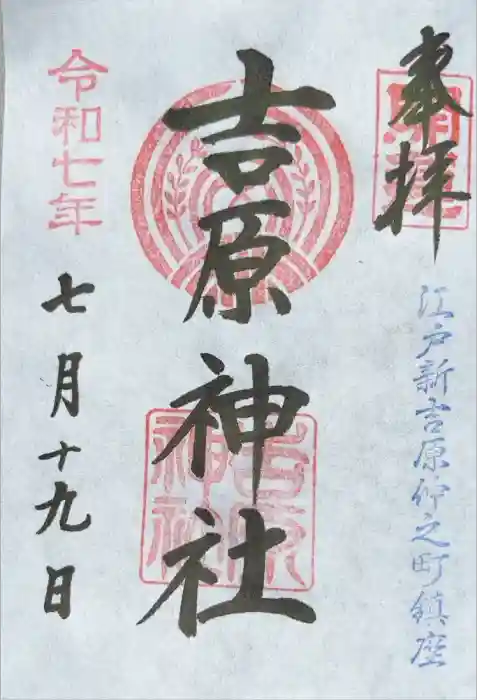 奉拝
開運
江戸新吉原仲之町鎮座
吉原神社
吉原神社
令和七年
七月十九日